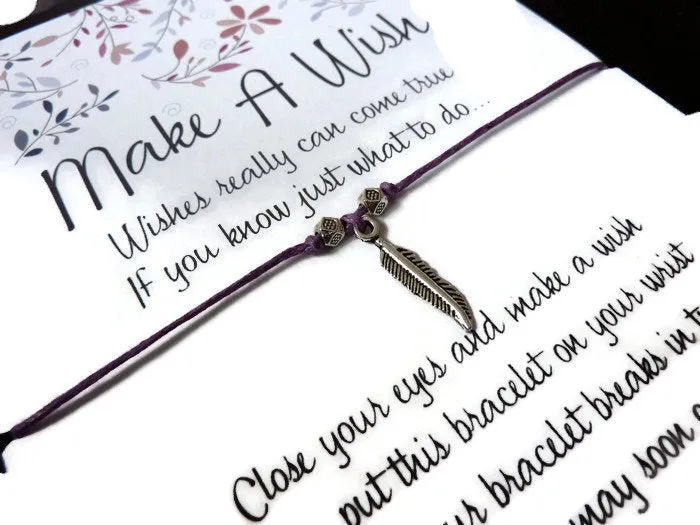 Make A Wish
Wishes really can come true
If you know just what to do...
Close your eyes and make a wish
put this bracelet on your wrist
bracelet breaks in
may soon